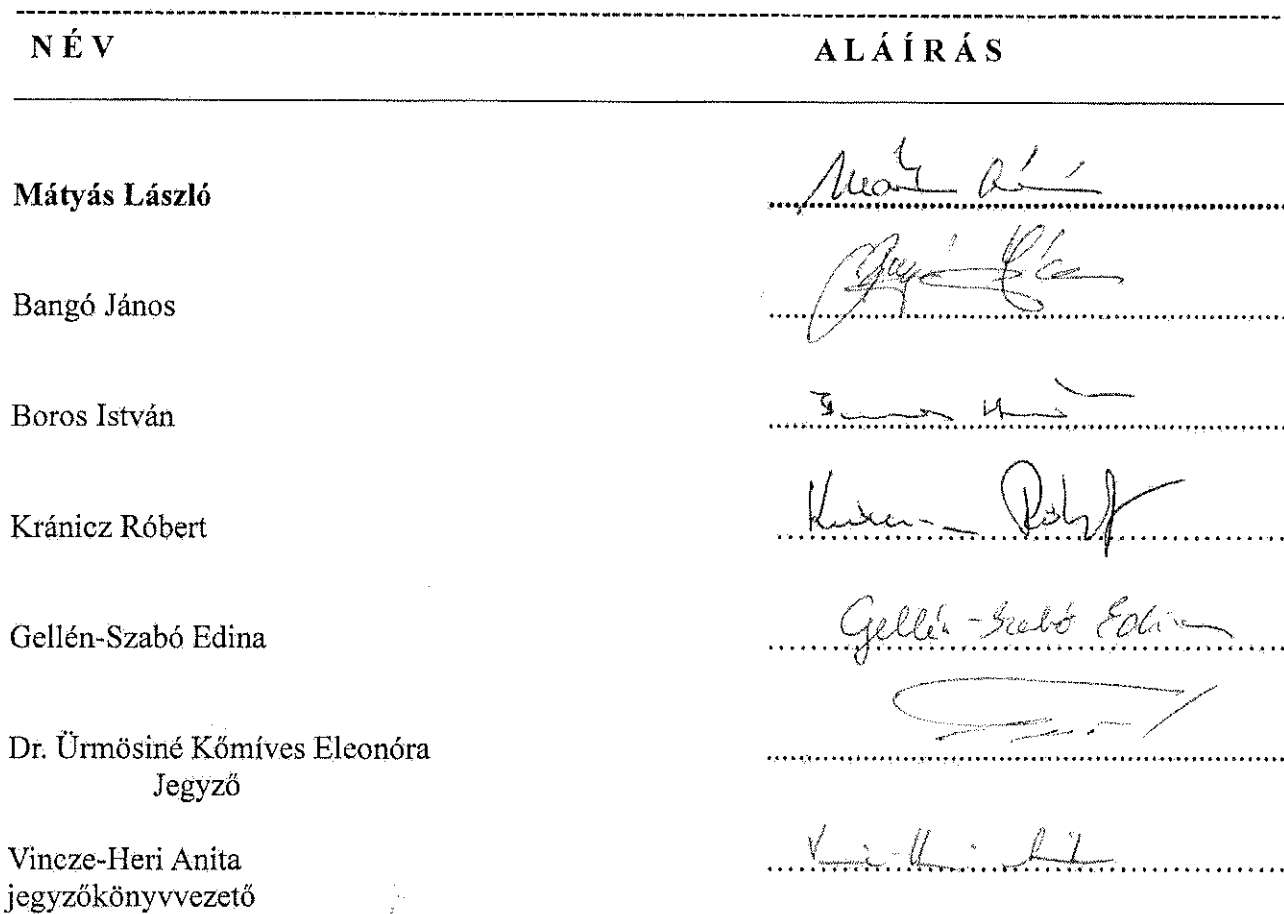 NÉV ALÁÍRÁS
Mátyás László
Bangó János
Boros István
Kránicz Róbert Róbert
Gellén-Szabó Edina Gellén-Szabó Edina
Dr. Ürmösiné Kőmíves Eleonóra
Jegyző
Vincze-Heri Anita
jegyzőkönyvvezető